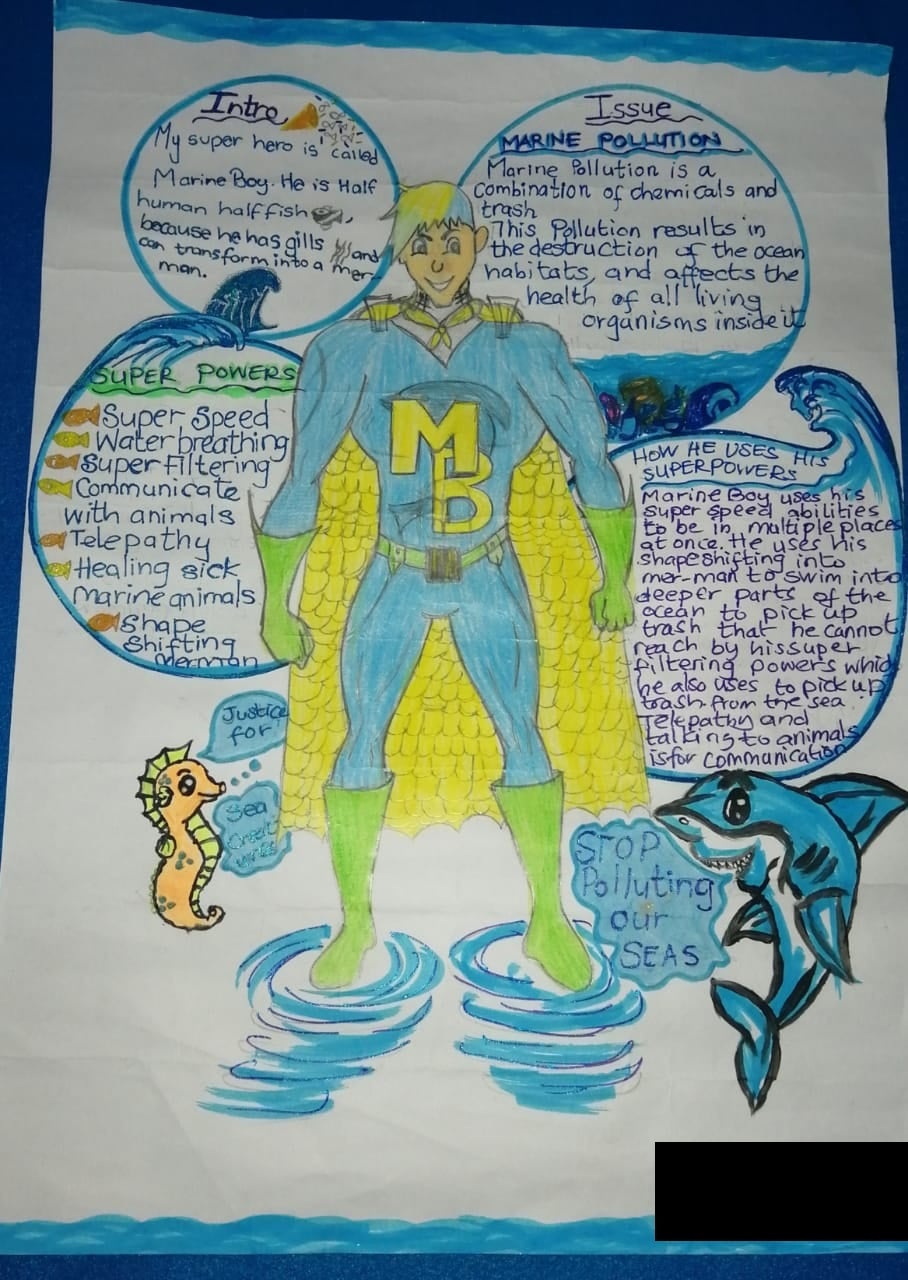 Intro
My super hero is called
Marine Boy. He is Half
human half fish,
because he has gills and
can transform into a mer
man.
Issue
MARINE POLLUTION
Marine Pollution is a
combination of chemicals and
trash
This Pollution results in
the destruction of the ocean
habitats, and affects the
health of all living
organisms inside it
SUPER POWERS
Super Speed
Water breathing
Super Filtering
Communicate
with animals
Telepathy
Healing sick
Marine animals
Shape
Shifting
Merman
MB
HOW HE USES HIS
SUPERPOWERS
Marine Boy uses his
super speed abilities
to be in multiple places
at once. He uses his
shapeshifting into
mer-man to swim into
deeper parts of the
ocean to pick up
trash that he cannot
reach by his super
filtering powers which
he also uses to pick up
trash from the sea.
Telepathy and
talking to animals
is for communication
Justice
for
Sea
Creat
ures
STOP
Polluting
our
SEAS